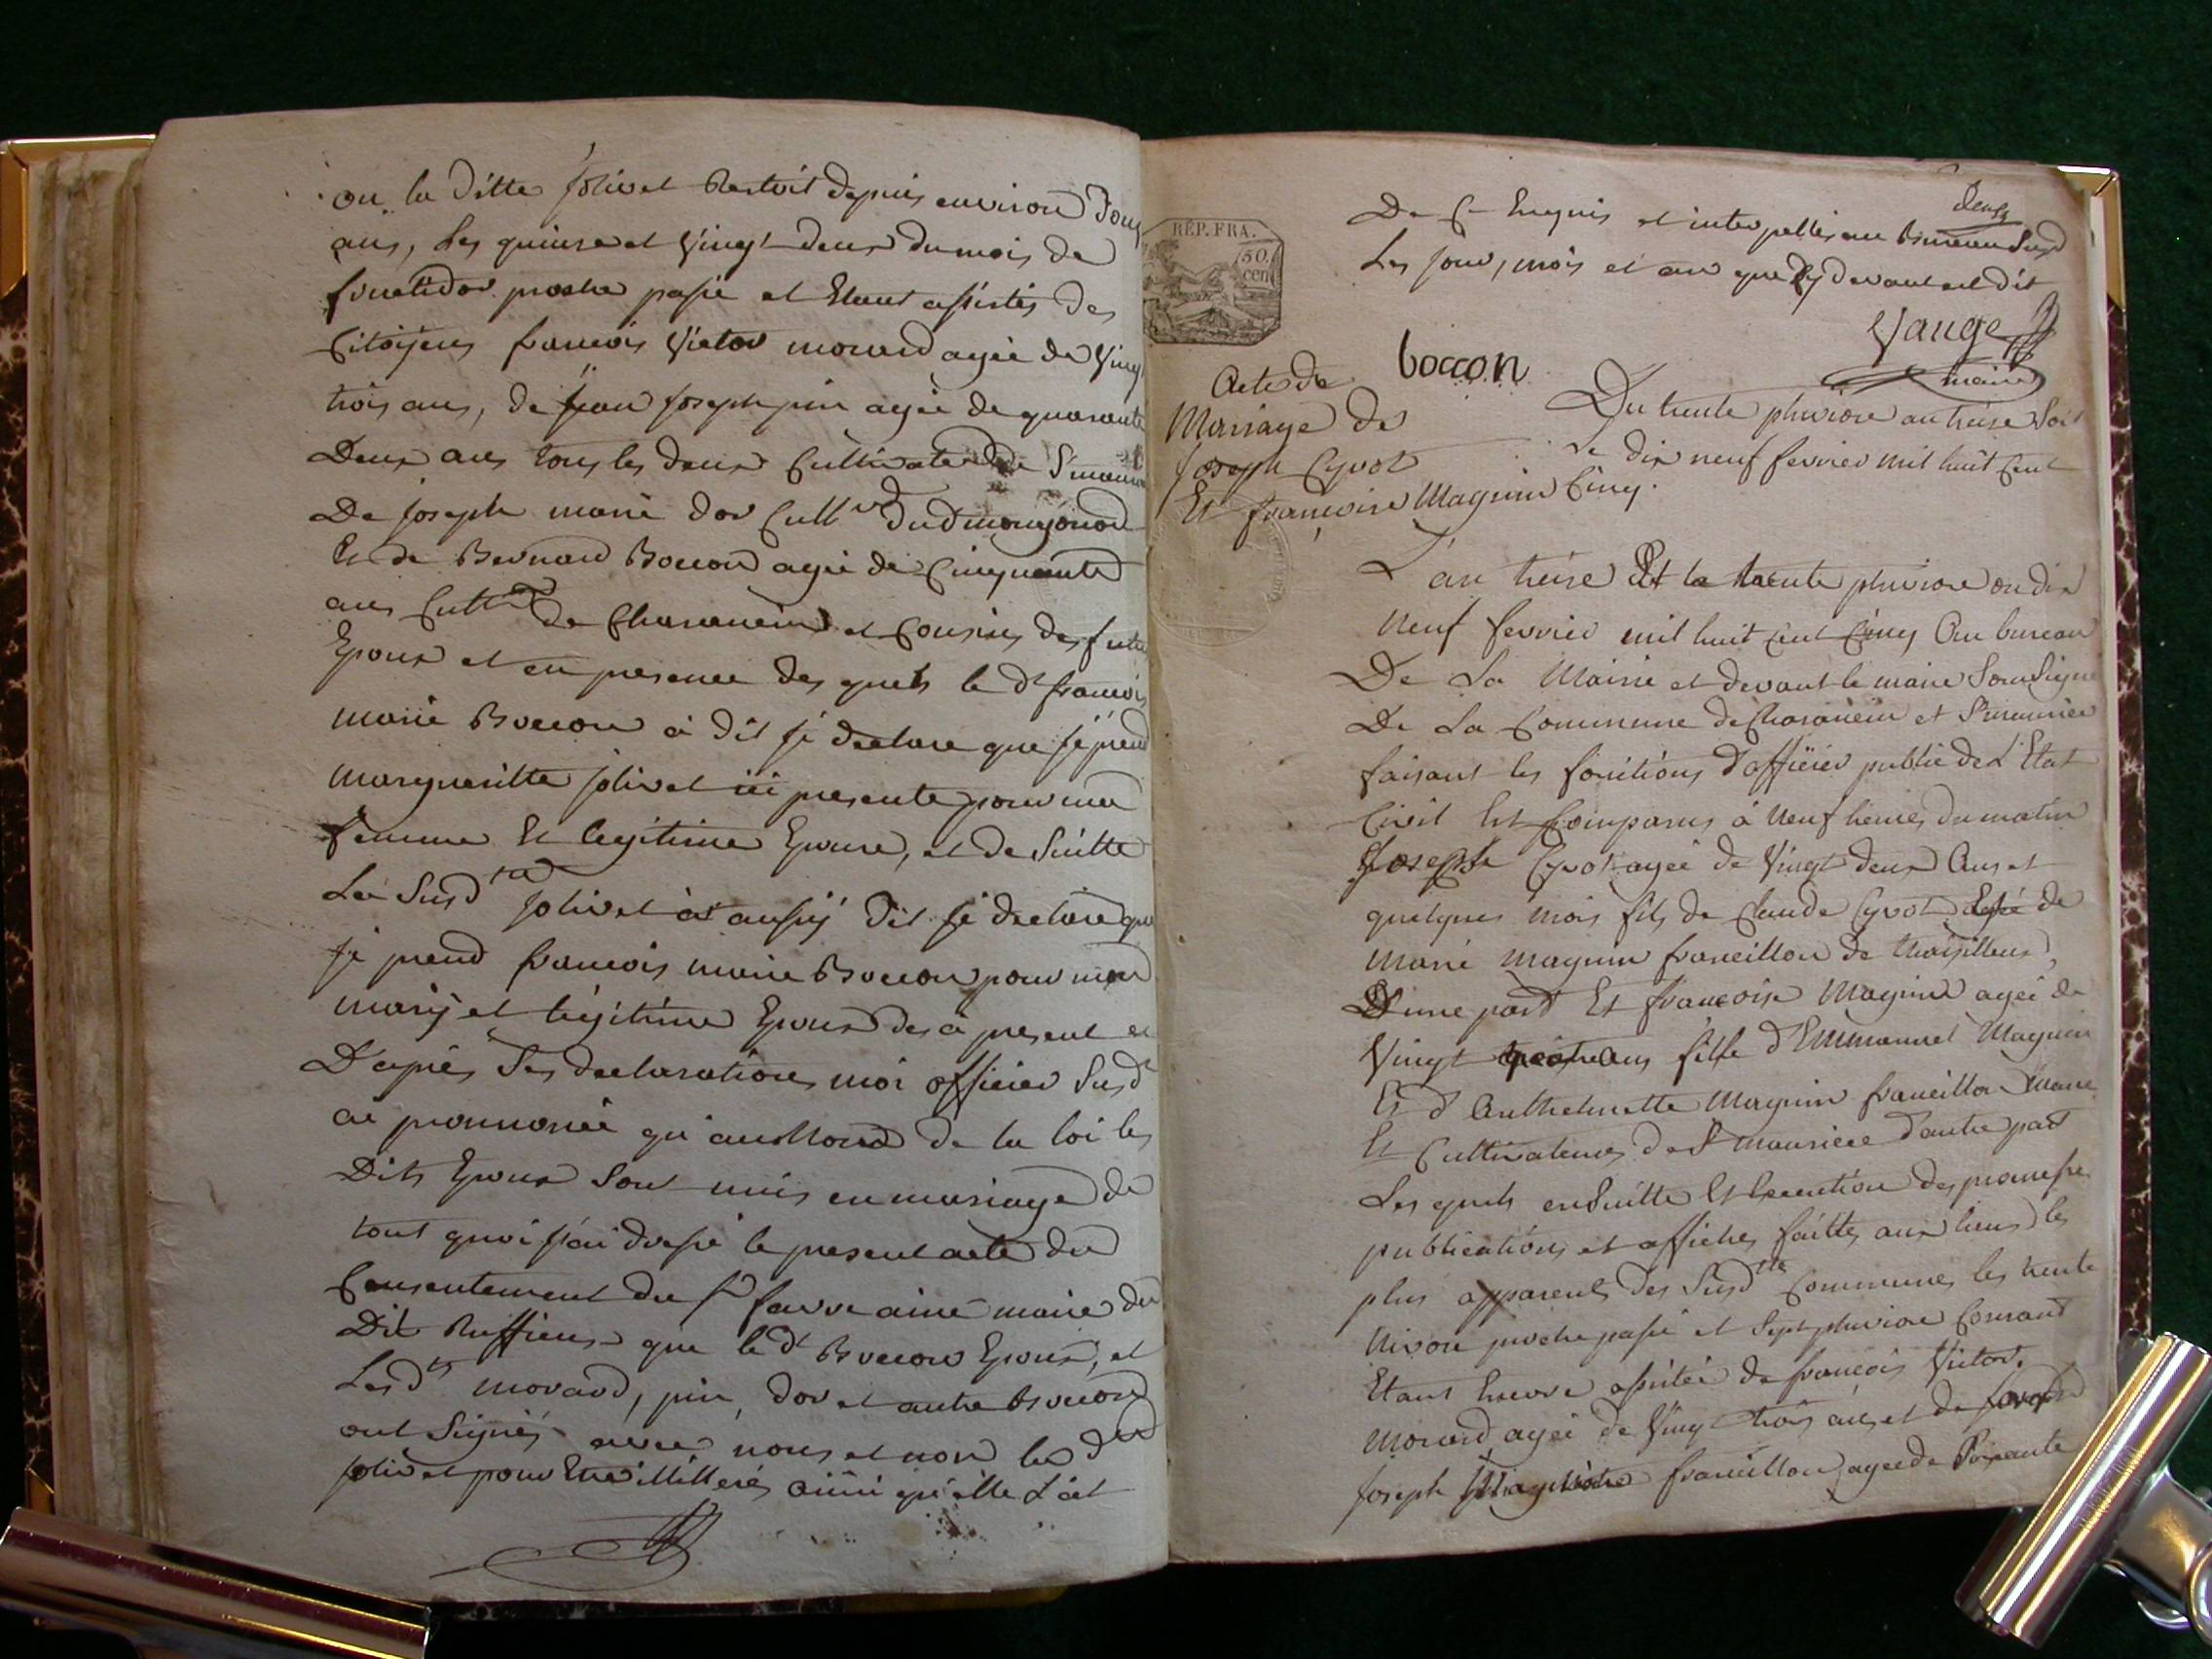 ou la ditte Jolivet Restoit depuis environ douz
ans, Les quinse et Vingt deux du mois de
fructidor proche passé et Etant assistés des
Citoÿens francois Victor morard agée de Ving
trois ans, de jean Joseph pin agée de quarante
Deux ans tous les deux Cultivateurs de St mauri
De Joseph marie dor Cultr dud
Et de Bernard Boccon agée de Cinquante
ans Cultr de Charancin et Cousins des futur
Epoux et en presence des quels le dt francois
marie Boccon à dit je declare que je prend
margueritte jolivet ici presente pour ma
femme Et legitime Epouse, et de suitte
La susdte jolivet à aussÿ dit je declare que
je prend francois marie Boccon pour mon
marÿ et légitime Epoux des à present et
D'après Ses declarations moi officier Susdt
ai prononcé qu'au Nom de la loi les
Dits Epoux Sont unis en mariage de
tout quoi j'ai dressé le present acte du
Consentement du Sr favre ainé maire du
Dit Ruffieux que le dt Boccon Epoux, et
Lesdts morard, pin, dor et autre Boccon
ont Signés avec nous et non la dte
jolivet pour Etre illitteré ainsi qu'elle L'at
deux
De Ce Enquis et interpellés au bureau Susd
Les jour, mois et an que cÿ devant est dit
Vauge
maire
boccon
RÉP. FRA.
50
cen
Acte de
Mariage de
Joseph Cyvot
Et françoise Magnin
Du trente pluviose an treise Soit
Le dix neuf fevrier mil huit Cent
Cinq.
L'an treise Et le trente pluviose ou dix
neuf fevrier mil huit Cent Cinq Au bureau
De La Mairie et devant le maire SousSigné
De La Commune de Charancin et St maurice
faisant les fonctions d'officier public de L'Etat
Civil Est Comparus à neuf heures du matin
Joseph Cyvot agée de Vingt deux Ans et
quelques mois fils de Claude Cyvot et de
Marie magnin francillon de
D'une part Et francoise Magnin agée de
Vingt quatre ans fille d'Emmanuel Magnin
Et d'Anthelmette Magnin francillon
Et Cultivateurs de St maurice d'autre part
Les quels ensuitte Et Execution des promesse
publications et affiches faittes aux lieux les
plus apparents des Susdtes Communes les trente
Nivose proche passé et Sept pluviose Courant
Etant Encore assistée de francois Victor
Morard agée de Vingt trois ans et de
Joseph francillon agée de Soixante